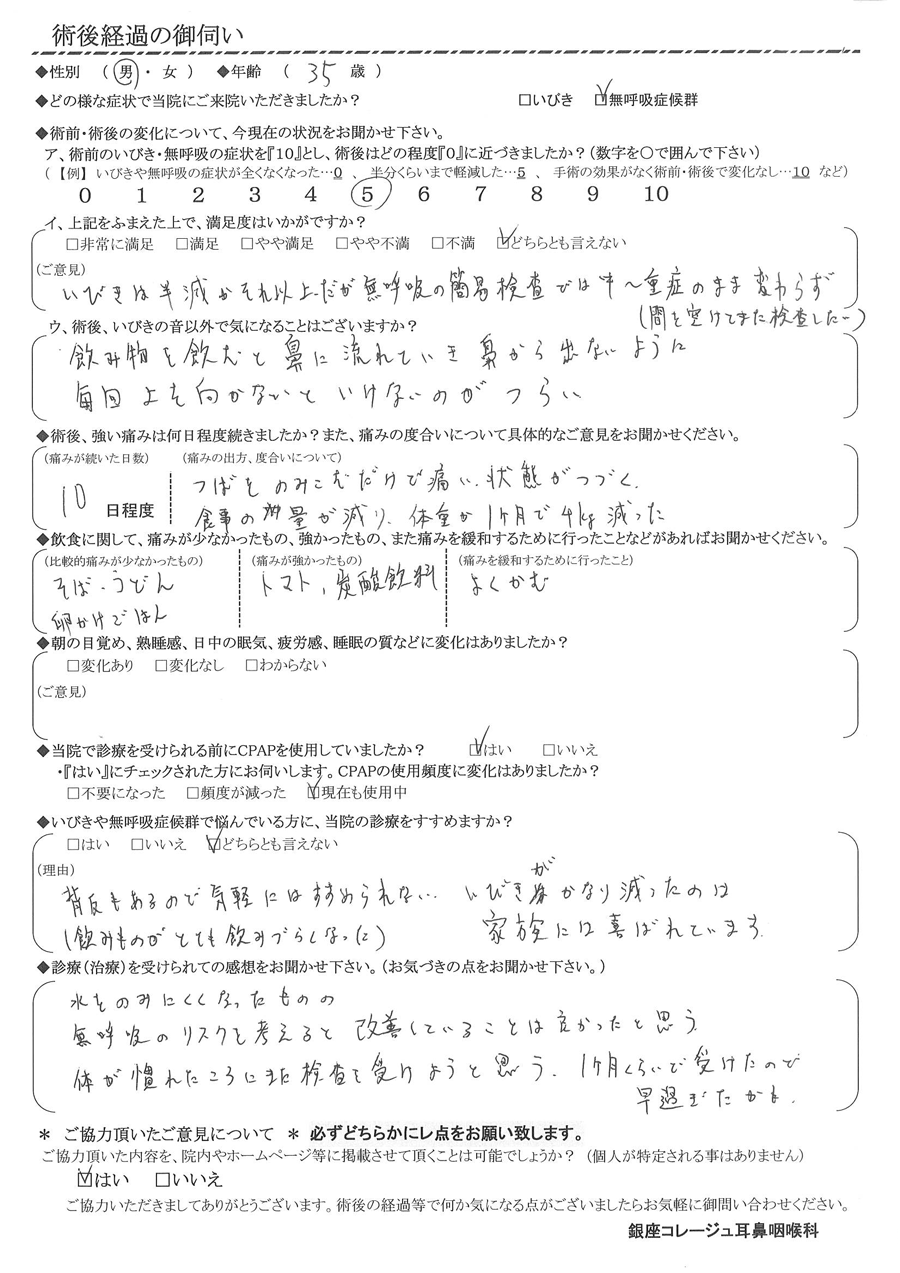 術後経過の御伺い
◆性別 ( 男 ・ 女 ) ◆年齢 ( 35 歳 )
◆どの様な症状で当院にご来院いただきましたか? □いびき ☑無呼吸症候群
◆術前・術後の変化について、今現在の状況をお聞かせ下さい。
ア、術前のいびき・無呼吸の症状を『10』とし、術後はどの程度『0』に近づきましたか?(数字を〇で囲んで下さい)
(【例】 いびきや無呼吸の症状が全くなくなった…0 、 半分くらいまで軽減した…5 、 手術の効果がなく術前・術後で変化なし…10 など)
0 1 2 3 4 5 6 7 8 9 10
イ、上記をふまえた上で、満足度はいかがですか?
□非常に満足 □満足 □やや満足 □やや不満 □不満 ☑どちらとも言えない
(ご意見)
いびきは半減かそれ以上だが無呼吸の簡易検査では中〜重症のまま変わらず
(間を空けてまた検査したい)
ウ、術後、いびきの音以外で気になることはございますか?
飲み物を飲むと鼻に流れていき鼻から出ないように
毎回上を向かないといけないのがつらい
◆術後、強い痛みは何日程度続きましたか?また、痛みの度合いについて具体的なご意見をお聞かせください。
(痛みが続いた日数) (痛みの出方、度合いについて)
10 日程度
つばをのみこむだけで痛い状態がつづく
食事の量が減り、体重が1ヶ月で4kg減った
◆飲食に関して、痛みが少なかったもの、強かったもの、また痛みを緩和するために行ったことなどがあればお聞かせください。
(比較的痛みが少なかったもの) (痛みが強かったもの) (痛みを緩和するために行ったこと)
そば・うどん トマト、炭酸飲料 よくかむ
卵かけごはん
◆朝の目覚め、熟睡感、日中の眠気、疲労感、睡眠の質などに変化はありましたか?
□変化あり □変化なし □わからない
(ご意見)
◆当院で診療を受けられる前にCPAPを使用していましたか? ☑はい □いいえ
・『はい』にチェックされた方にお伺いします。CPAPの使用頻度に変化はありましたか?
□不要になった □頻度が減った ☑現在も使用中
◆いびきや無呼吸症候群で悩んでいる方に、当院の診療をすすめますか?
□はい □いいえ ☑どちらとも言えない
(理由)
背反もあるので気軽にはすすめられない… いびきがかなり減ったのは
(飲みものがとても飲みづらくなった) 家族には喜ばれています。
◆診療(治療)を受けられての感想をお聞かせ下さい。(お気づきの点をお聞かせ下さい。)
水をのみにくくなったものの
無呼吸のリスクを考えると改善していることは良かったと思う。
体が慣れたころにまた検査を受けようと思う。1ヶ月くらいで受けたので
早過ぎたかも。
＊ ご協力頂いたご意見について ＊ 必ずどちらかにレ点をお願い致します。
ご協力頂いた内容を、院内やホームページ等に掲載させて頂くことは可能でしょうか? (個人が特定される事はありません)
☑はい □いいえ
ご協力いただきましてありがとうございます。術後の経過等で何か気になる点がございましたらお気軽に御問い合わせください。
銀座コレージュ耳鼻咽喉科